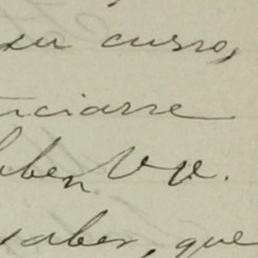 su curso,
nciarse
haber V. P.
saber, que